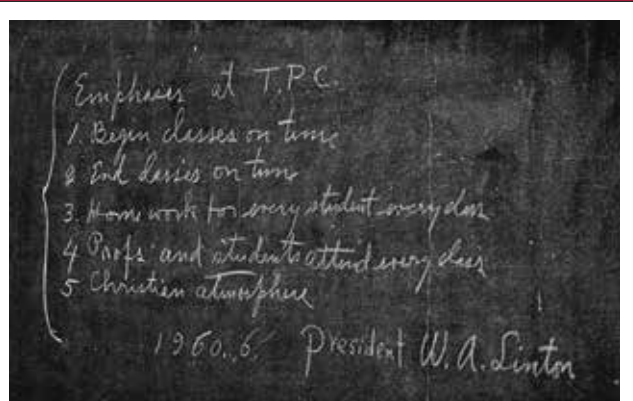 Emphases at T.P.C.
1. Begin classes on time
2 End classes on time
3. Home work for every student every class
4 Profs. and students attend every class
5 Christian atmosphere
1960.6. President W. A. Linton